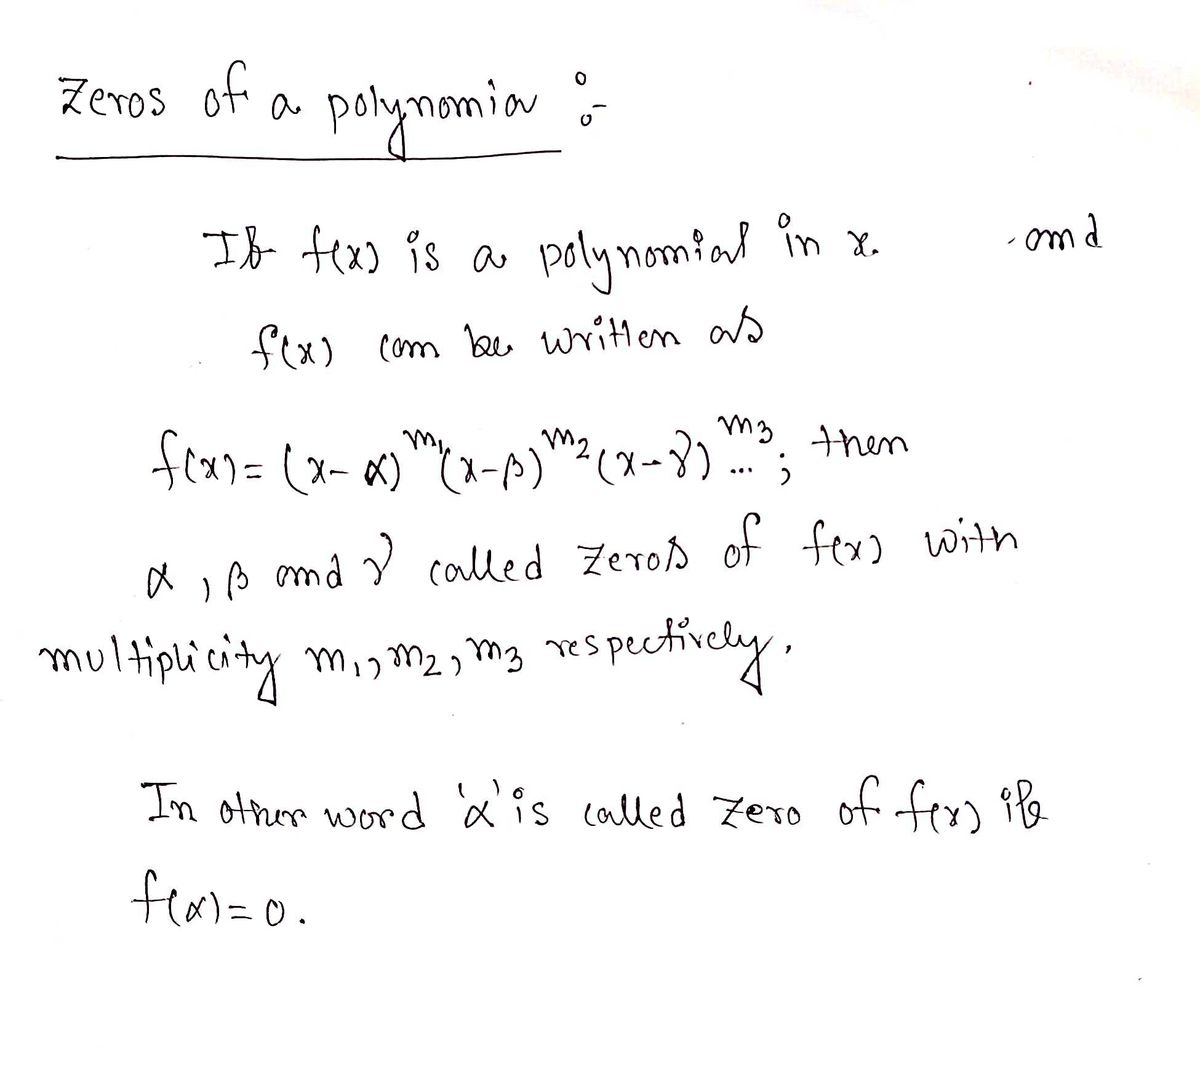 Zeros of a polynomial :-
If f(x) is a polynomial in x. and
f(x) can be written as
f(x) = (x - α)^m₁ (x - β)^m₂ (x - γ)^m₃ ... ; then
α , β and γ called zeros of f(x) with
multiplicity m₁, m₂, m₃ respectively.
In other word 'α' is called zero of f(x) if
f(α) = 0.